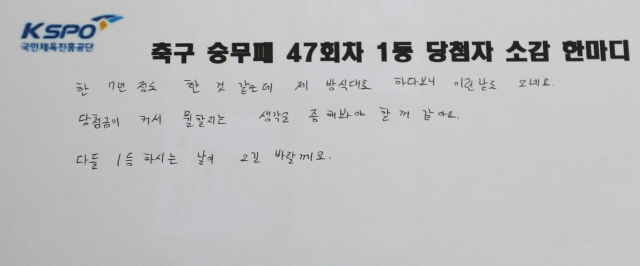 KSPO
국민체육진흥공단
축구 승무패 47회차 1등 당첨자 소감 한마디
한 7년 정도 한 것 같은데 제 방식대로 하다보니 이런날도 오네요.
당첨금이 커서 뭘할지는 생각을 좀 해봐야 할 꺼 같아요.
다들 1등 하시는 날이 오길 바랄께요.